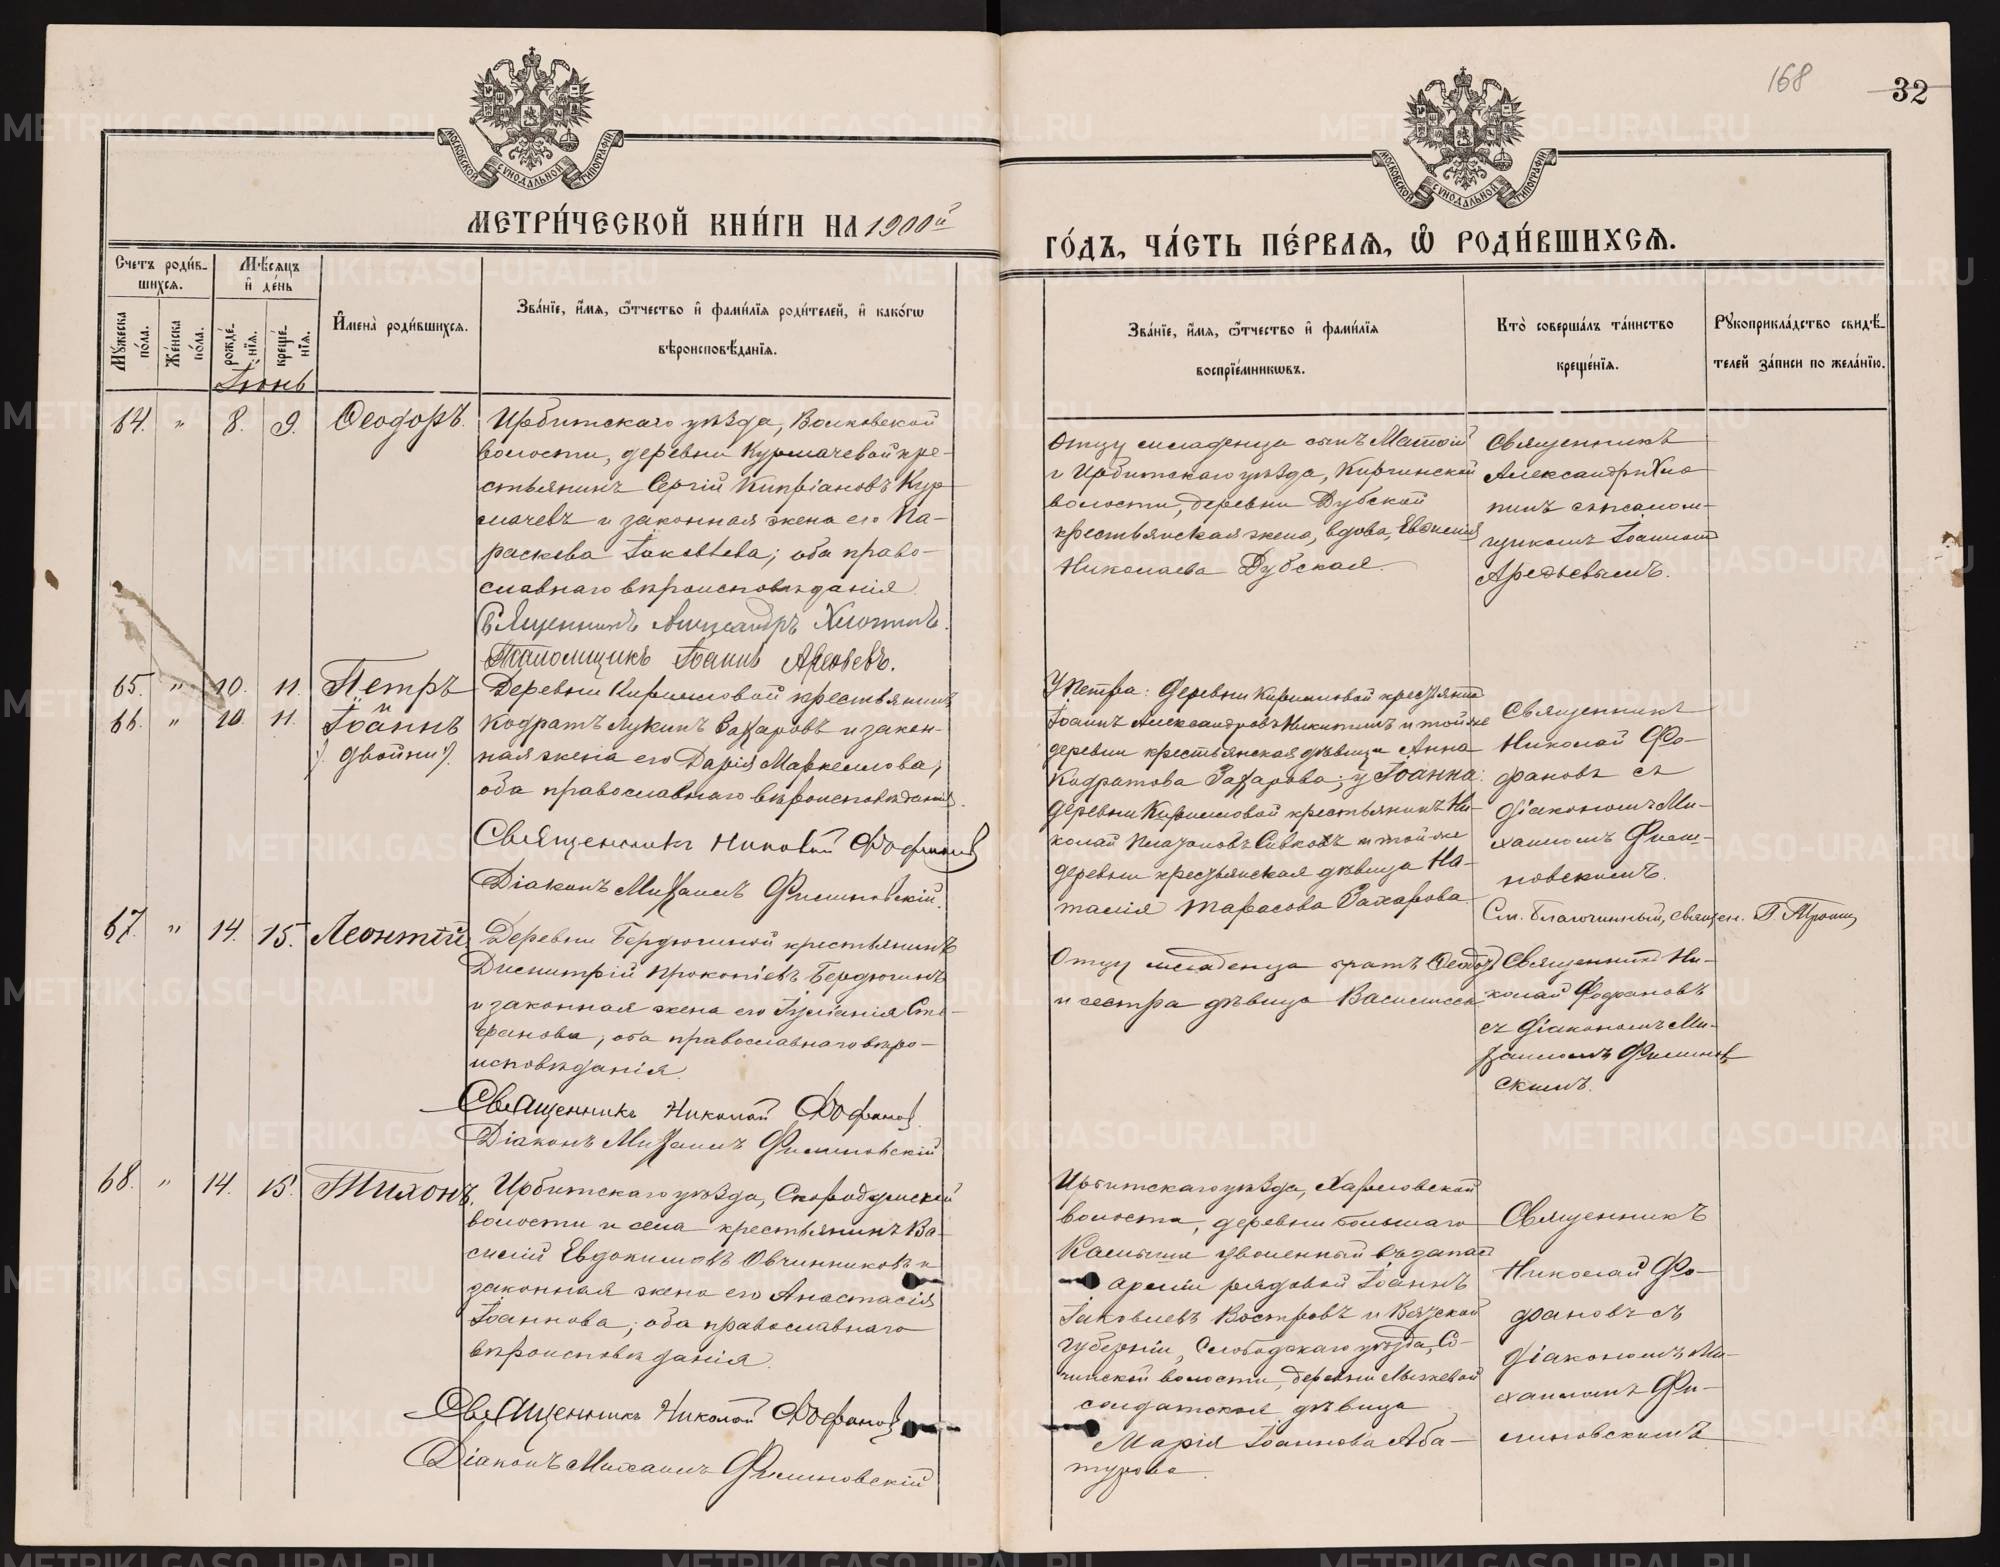 168
32
МОСКОВСКОЙ СѴНОДАЛЬНОЙ ТИПОГРАФІИ
МОСКОВСКОЙ СѴНОДАЛЬНОЙ ТИПОГРАФІИ
МЕТРИ́ЧЕСКОЙ КНИ́ГИ НА 1900й
ГО́ДЪ, ЧА́СТЬ ПЕ́РВАЯ, Ѿ РОДИ́ВШИХСЯ.
Счетъ роди́в-
шихся.
Мѣ́сяцъ
и҆ де́нь
Мꙋ́жеска
по́ла.
Же́нска
по́ла.
рожде́-
нїя.
креще́-
нїя.
И҆мена̀ роди́вшихся.
Зва́нїе, и҆́мя, ѻ҆́тчество и҆ фами́лїя роди́телей, и҆ како́гѡ
вѣроисповѣ́данїя.
Зва́нїе, и҆́мя, ѻ҆́тчество и҆ фами́лїя
воспрїе́мникѡвъ.
Кто̀ соверша́лъ та́инство
креще́нїя.
Рꙋкоприкла́дство свидѣ́-
телей за́писи по жела́нїю.
Іюнь
64. " 8. 9. Ѳеодоръ.
Ирбитскаго уѣзда, Волковской
волости, деревни Курмачевой кре-
стьянинъ Сергій Кипріановъ Кур-
мачевъ и законная жена его Па-
раскева Іаковлева; оба право-
славнаго вѣроисповѣданія.
Священникъ Александръ
Псаломщикъ Іоаннъ Арефьевъ.
Отцу младенца сынъ
и Ирбитскаго уѣзда, Киргинской
волости, деревни Дубской
крестьянская жена, вдова, Евфимія
Николаева Дубская.
Священникъ
Александръ
съ псалом-
щикомъ Іоанномъ
Арефьевымъ.
65. " 10. 11. Петръ
66. " 10. 11. Іоаннъ
/. двойни /.
Деревни Кирилловой крестьянинъ
Кодратъ Лукинъ Захаровъ и закон-
ная жена его Дарія Маркеллова,
оба православнаго вѣроисповѣданія.
Священникъ Николай
Діаконъ Михаилъ Филиновскій.
У Петра: деревни Кирилловой крестьянинъ
Іоаннъ Александровъ Никитинъ и той же
деревни крестьянская дѣвица Анна
Кодратова Захарова; у Іоанна:
деревни Кирилловой крестьянинъ Ни-
колай Платоновъ Сивковъ и той же
деревни крестьянская дѣвица На-
талія Тарасова Захарова.
Священникъ
Николай
съ
діакономъ Ми-
хаиломъ Фили-
новскимъ.
См. Благочинный, священ.
67. " 14. 15. Леонтій
Деревни Бердюгиной крестьянинъ
Димитрій Прокопіевъ Бердюгинъ
и законная жена его Іуліанія Сте-
фанова, оба православнаго вѣро-
исповѣданія.
Священникъ Николай
Діаконъ Михаилъ Филиновскій
Отцу младенца братъ Ѳеодоръ
и сестра дѣвица Василисса
Священникъ Ни-
колай
съ діакономъ Ми-
хаиломъ Филинов-
скимъ.
68. " 14. 15. Тихонъ.
Ирбитскаго уѣзда, Скородумской
волости и села крестьянинъ Ва-
силій Евдокимовъ Овчинниковъ и
законная жена его Анастасія
Іоаннова; оба православнаго
вѣроисповѣданія.
Священникъ Николай
Діаконъ Михаилъ Филиновскій
Ирбитскаго уѣзда, Харловской
волости, деревни Большаго
Камыша уволенный въ запасъ
арміи рядовой Іоаннъ
Іаковлевъ Востровъ и Вятской
губерніи, Слободскаго уѣзда,
волости, деревни
солдатская дѣвица
Марія Іоаннова Аба-
турова.
Священникъ
Николай
съ
діакономъ Ми-
хаиломъ Фи-
линовскимъ
METRIKI.GASO-URAL.RU